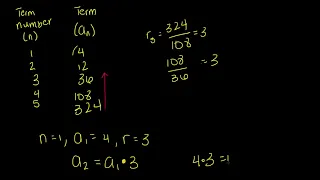 Term number (n)
Term (aₙ)
1 4
2 12
3 36
4 108
5 324
r₅ = 324/108 = 3
108/36 = 3
n=1, a₁ = 4, r = 3
a₂ = a₁ • 3
4•3 = 1